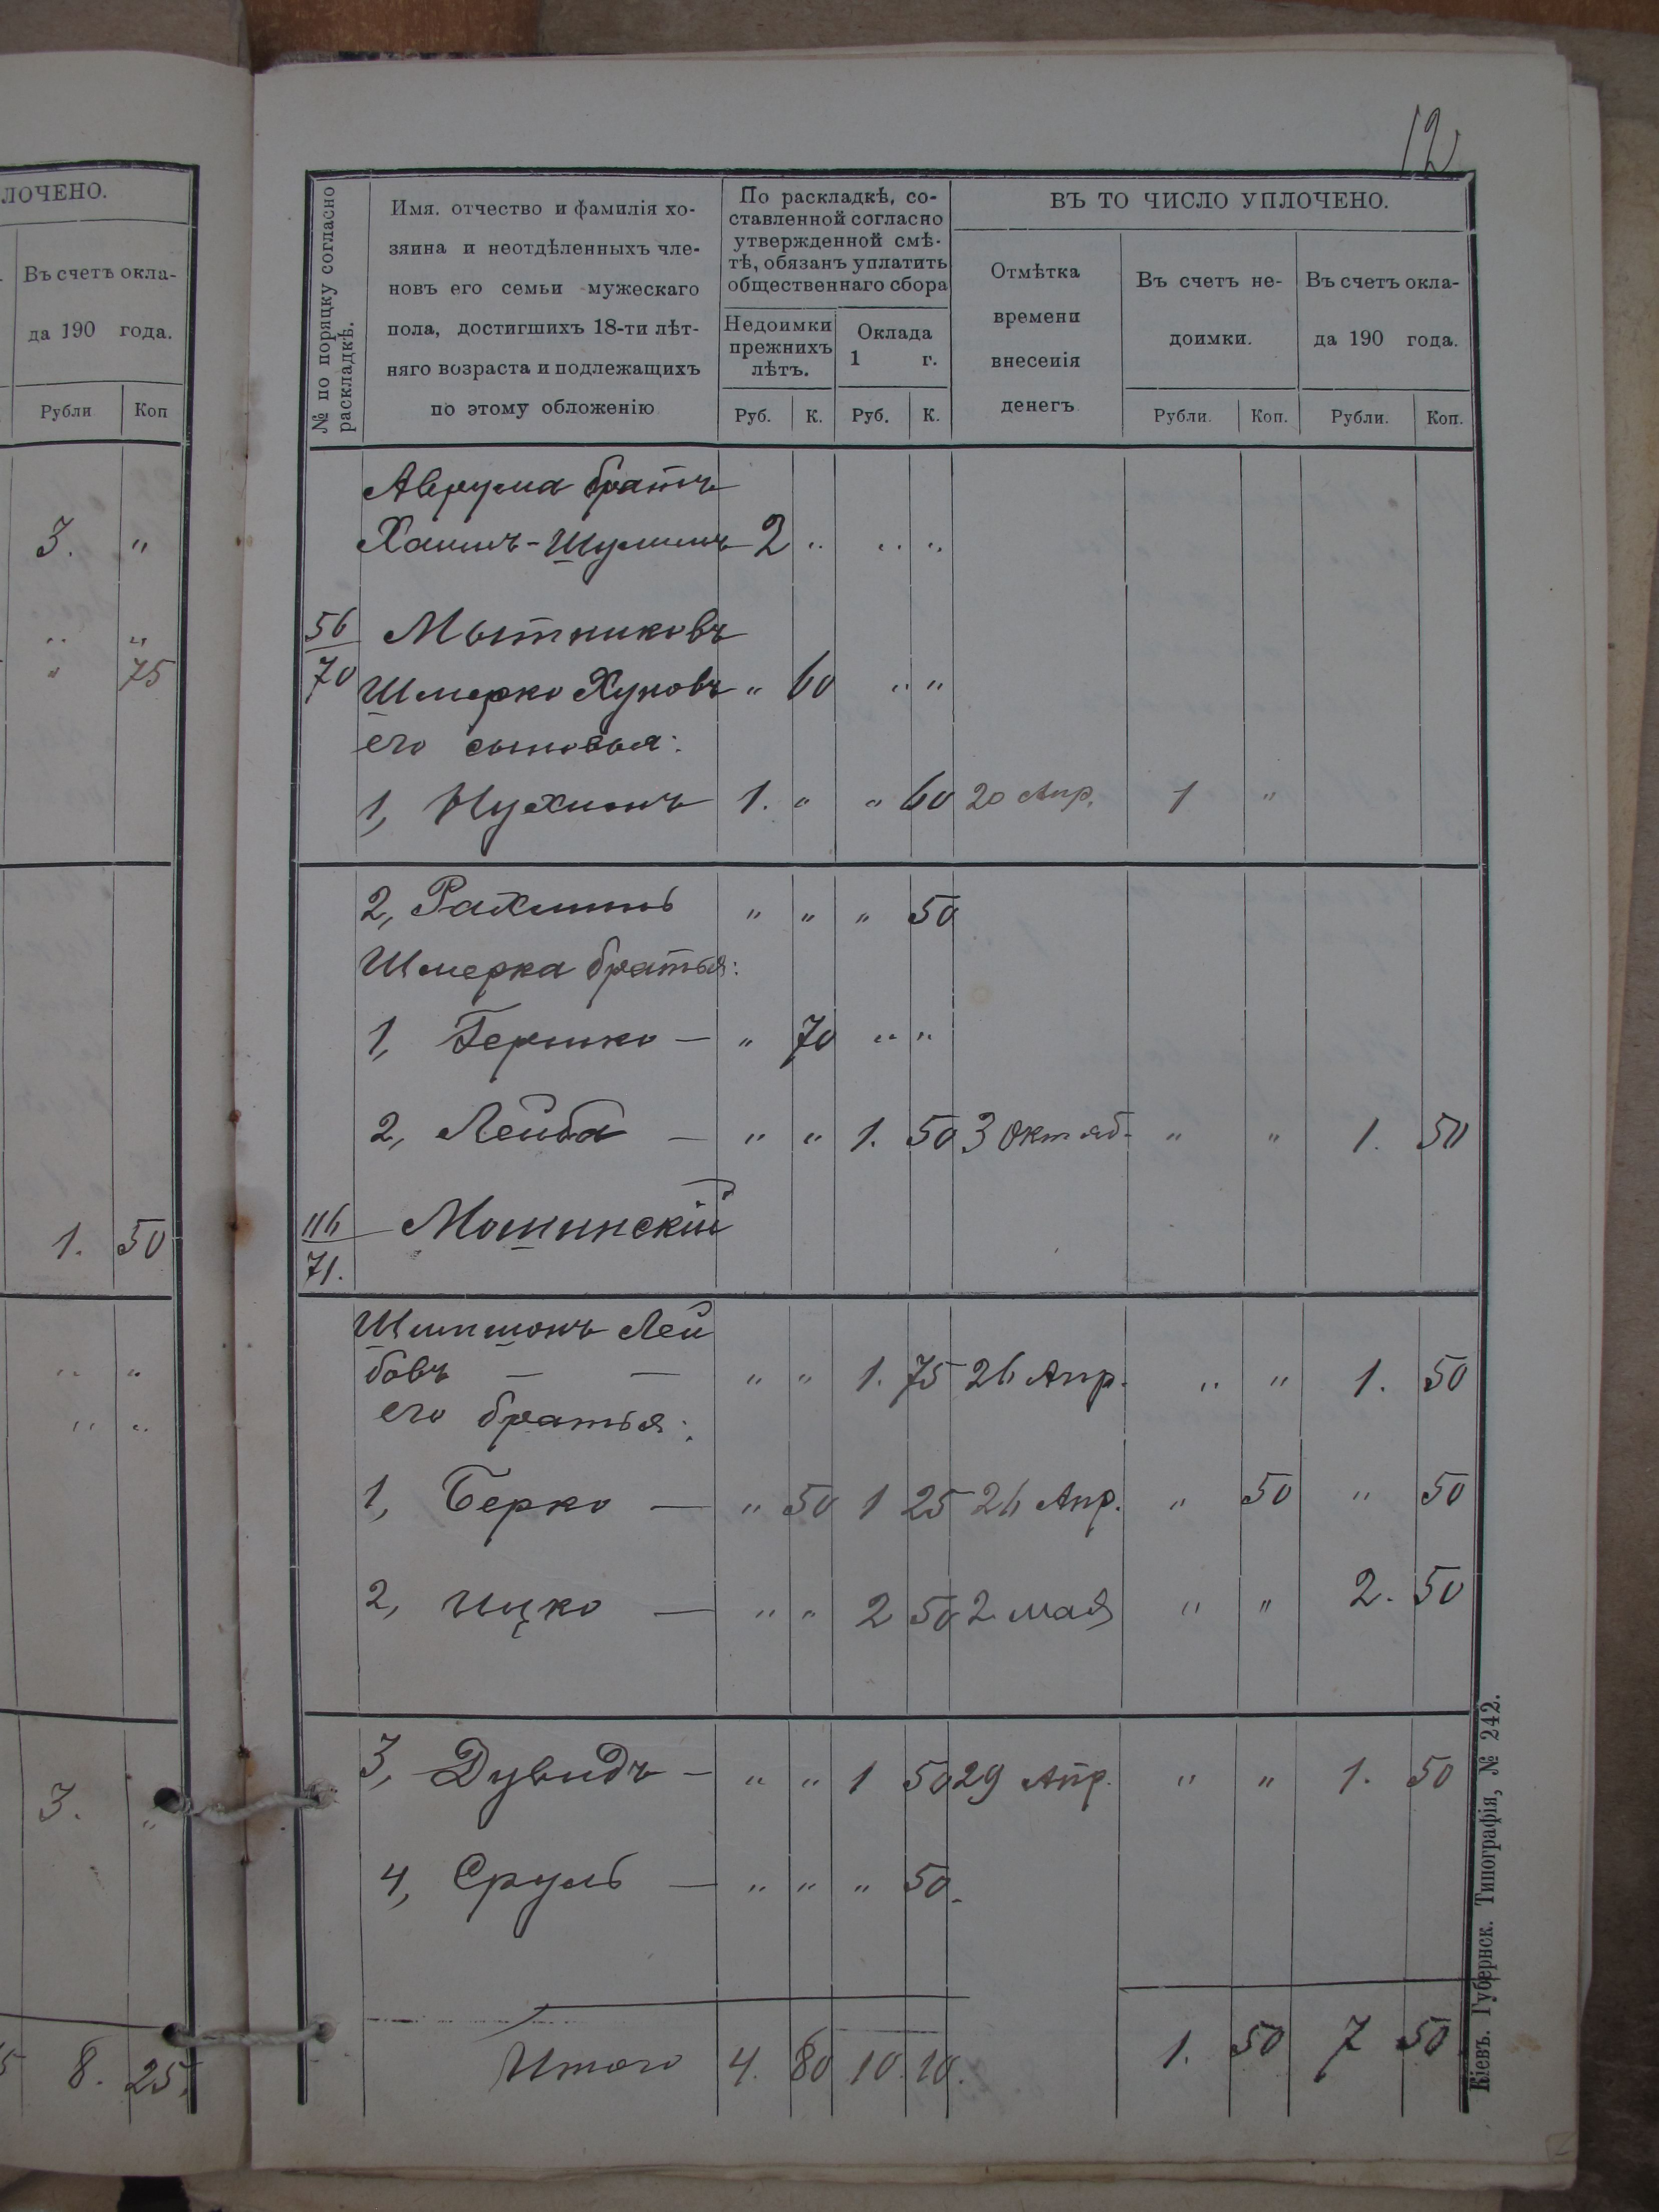 ЛОЧЕНО.
Въ счетъ окла-
да 190 года.
Рубли Коп
3. "
" "
" 75
1. 50
" "
" "
3. "
5 8. 25.
12
№ по поряцку согласно
раскладкѣ.
Имя. отчество и фамилія хо-
зяина и неотдѣленныхъ чле-
новъ его семьи мужескаго
пола, достигшихъ 18-ти лѣт-
няго возраста и подлежащихъ
по этому обложенію
По раскладкѣ, со-
ставленной согласно
утвержденной смѣ-
тѣ, обязанъ уплатить
общественнаго сбора
Недоимки
прежнихъ
лѣтъ.
Оклада
1 г.
Руб. К. Руб. К.
ВЪ ТО ЧИСЛО УПЛОЧЕНО.
Отмѣтка
времени
внесенія
денегъ
Въ счетъ не-
доимки.
Въ счетъ окла-
да 190 года.
Рубли. Коп. Рубли. Коп.
Аврума братъ
Хаимъ-Шулимъ 2 " " "
56 Мытниковъ
70 Шмерко Хуновъ " 60 " "
его сыновья:
1, Нухимъ 1. " " 60 20 Апр. 1 "
2, Рахмиль " " " 50
Шмерка братья:
1, Гершко — " 70 " "
2, Лейба — " " 1. 50 3 Октяб. " " 1. 50
116 Мошинскій
71.
Шимшонъ Лей
бовъ — — " " 1. 75 26 Апр. " " 1. 50
его братья:
1, Берко — " 50 1 25 26 Апр. " 50 " 50
2, Ицко — " " 2 50 2 мая " " 2. 50
3, Дувидъ — " " 1 50 29 Апр. " " 1. 50
4, Сруль — " " " 50.
Итого 4. 80 10. 10. 1. 50 7 50
Кіевъ. Губернск. Типографія, № 242.